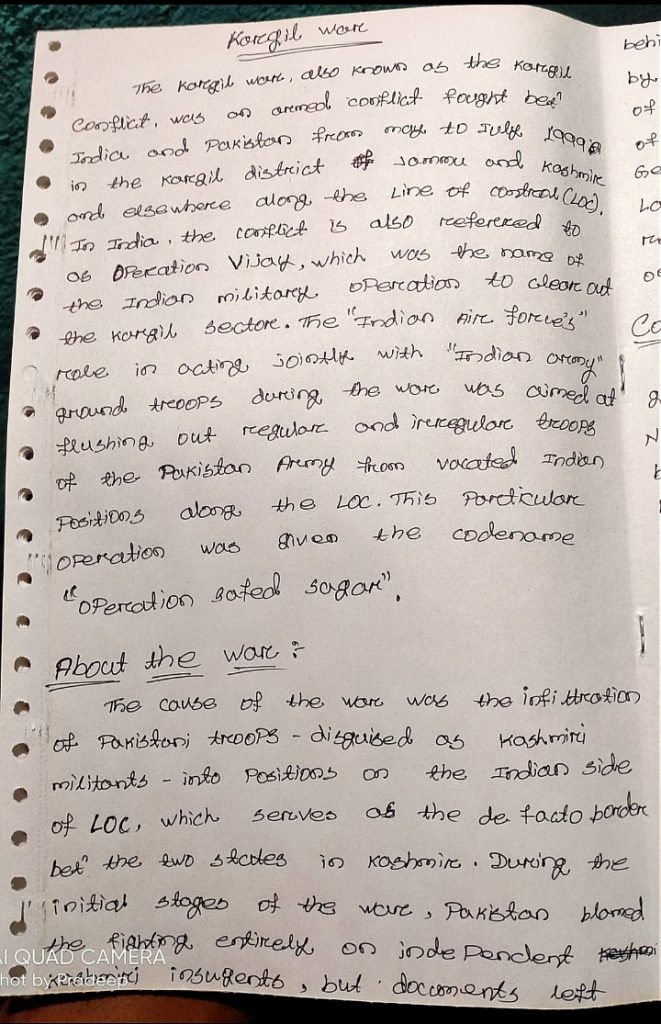 Kargil war
The Kargil war, also known as the Kargil
Conflict, was an armed conflict fought betⁿ
India and Pakistan from may to July 1999
in the Kargil district of Jammu and Kashmir
and elsewhere along the Line of control (LOC).
In India, the conflict is also referred to
as Operation Vijay, which was the name of
the Indian military operation to clear out
the Kargil sector. The "Indian Air force's"
role in acting jointly with "Indian army"
ground troops during the war was aimed at
flushing out regular and irregular troops
of the Pakistan Army from vacated Indian
Positions along the LOC. This Particular
operation was given the codename
"Operation safed sagar".
About the war :-
The cause of the war was the infiltration
of Pakistani troops - disguised as Kashmiri
militants - into Positions on the Indian side
of LOC, which serves as the de facto border
betⁿ the two states in Kashmir. During the
initial stages of the war, Pakistan blamed
the fighting entirely on independent
Kashmiri insugents, but documents left
behi
by
of
of
Ge
Lo
Co
g
N
AI QUAD CAMERA
Shot by Pradeep